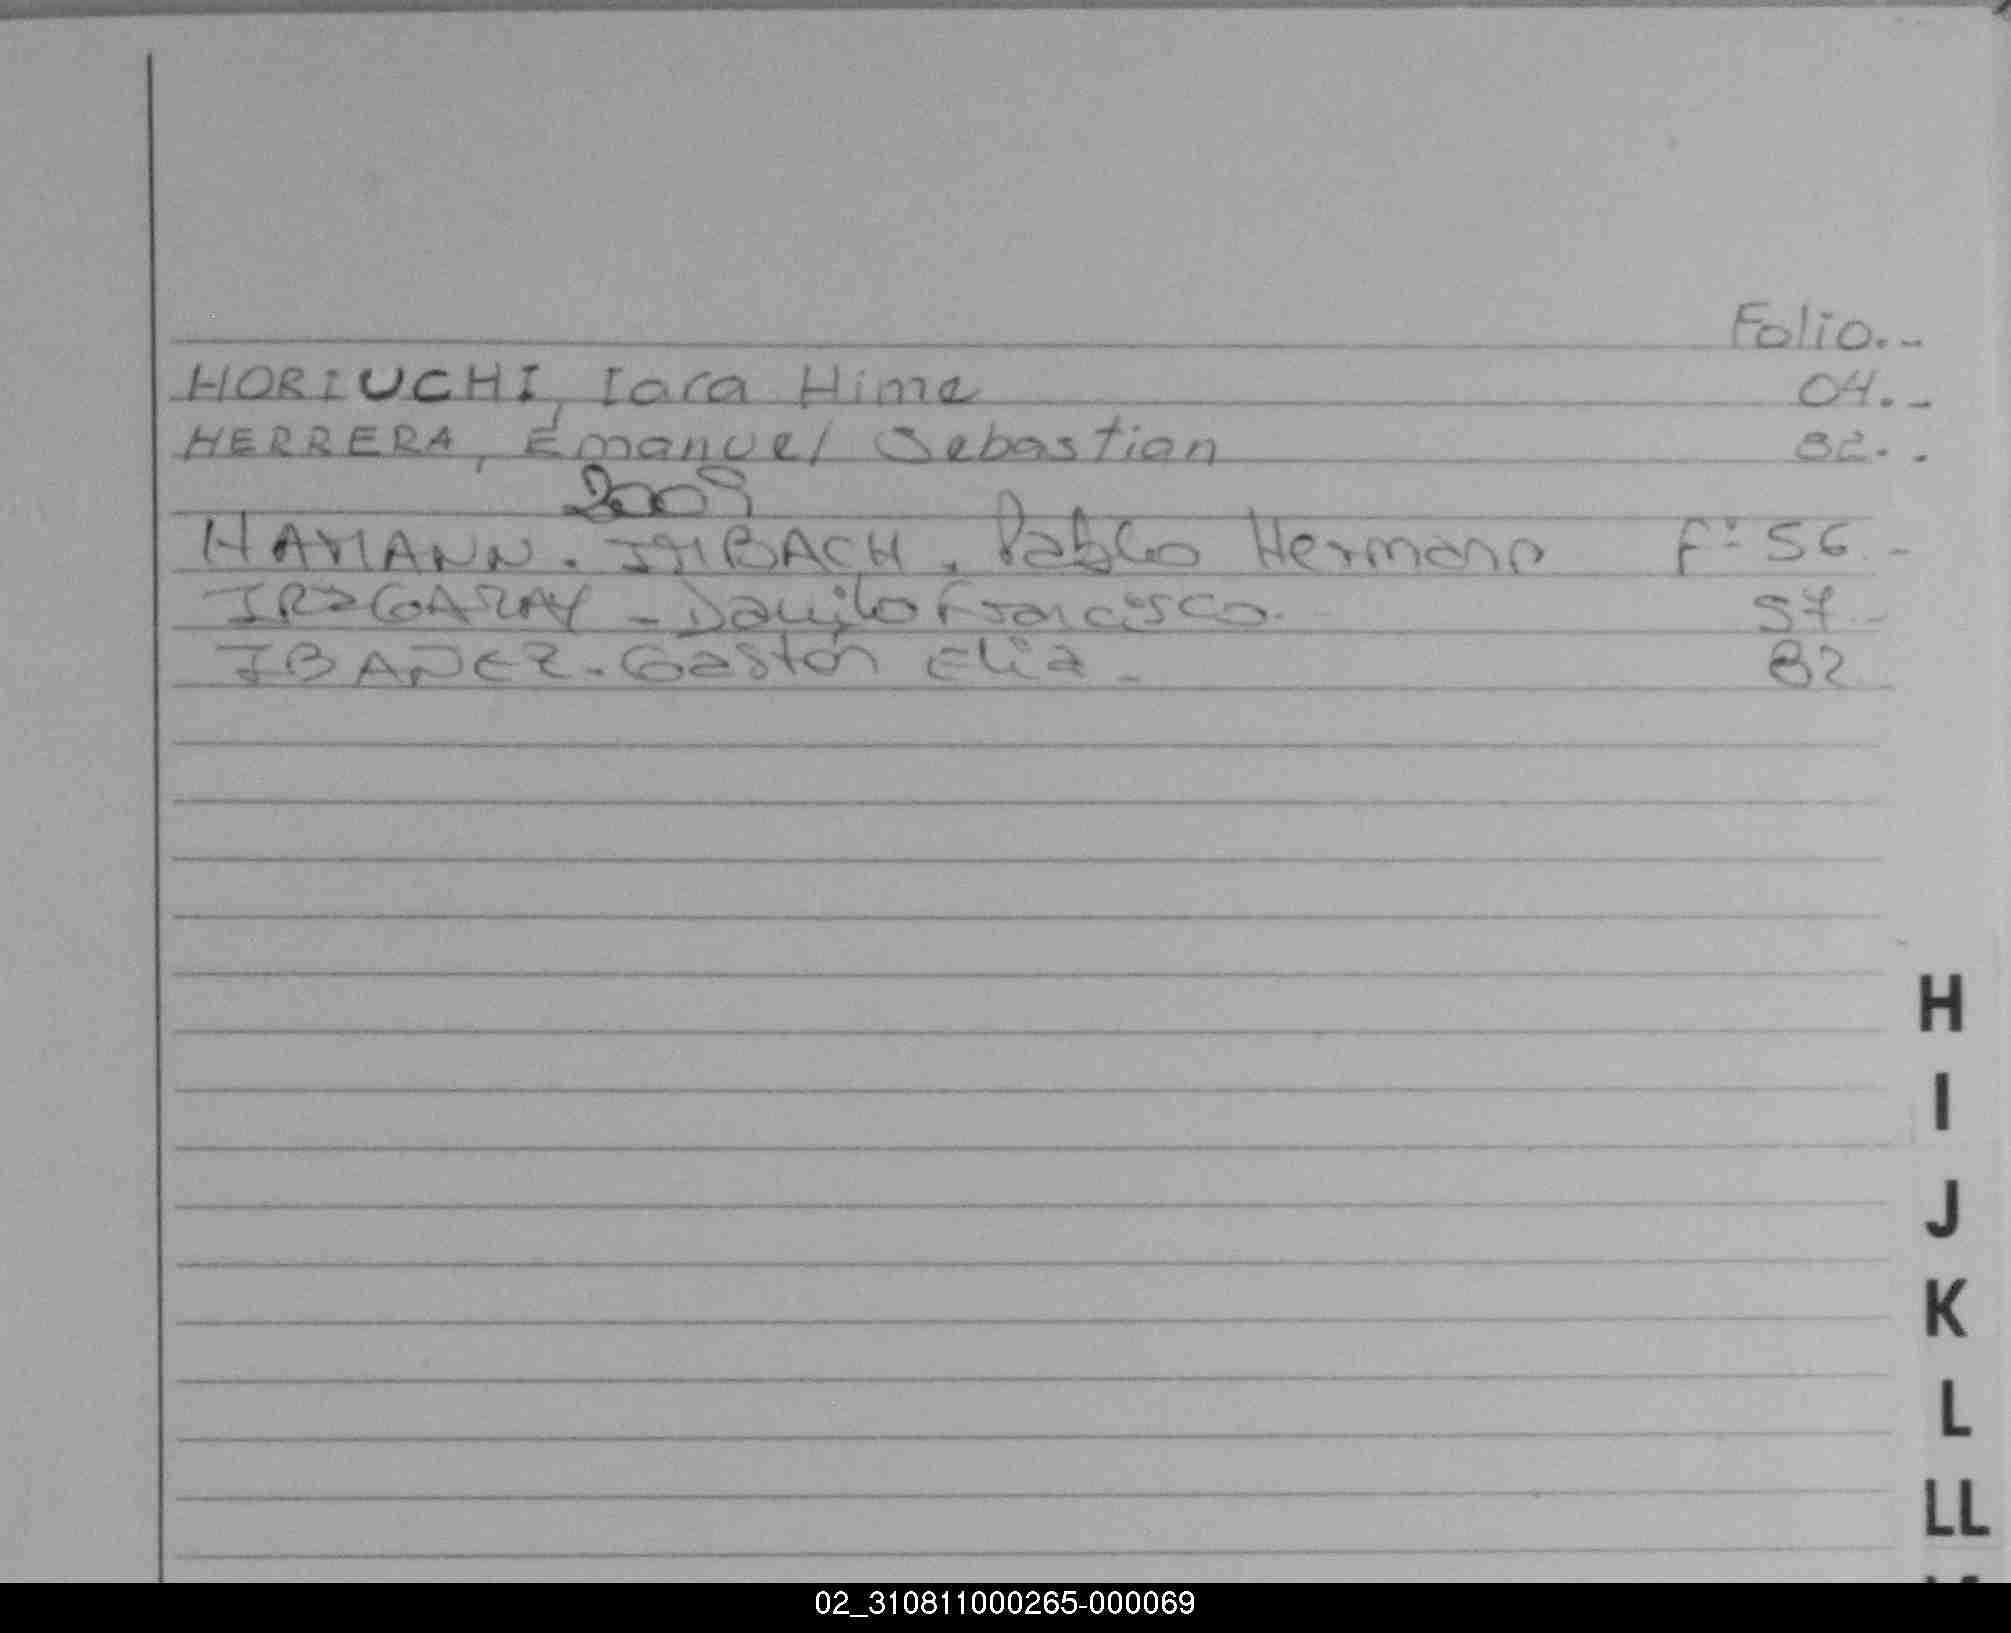 Folio.-
HORIUCHI, Iara Hime 04.-
HERRERA, Emanuel Sebastian 82..
2009
HAMANN. IMBACH. Pablo Hermann F: 56.-
IRZGARAY - Danilo Francisco. 57.-
IBAÑEZ. Gastón Elia - 82
H
I
J
K
L
LL
02_310811000265-000069